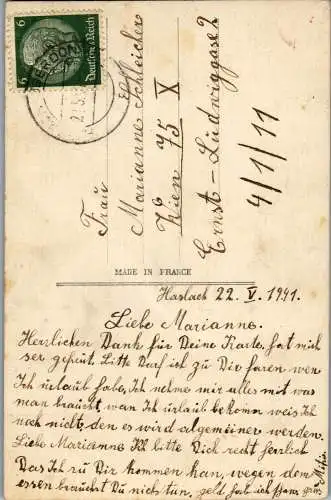 6
6
Deutsches Reich
Frau
Marianne Schleicher
Wien 75 X
Ernst-Ludwiggasse 2
4/1/11
MADE IN FRANCE
Haslach 22. V. 1941.
Liebe Marianne.
Herzlichen Dank für Deine Karte, hat mich
ser gefreut. Bitte Darf ich zu Dir faren wen
Ich urlaub habe, Ich nehme mir alles mit was
man braucht, wan Ich urlaub bekome weis Ich
noch nicht, den es wird algemeiner werden.
Liebe Marianne Ich bitte Dich recht herzlich
Das Ich zu Dir kommen kan, wegen dem
essen brauchst Du nichts tun, geld hab ich